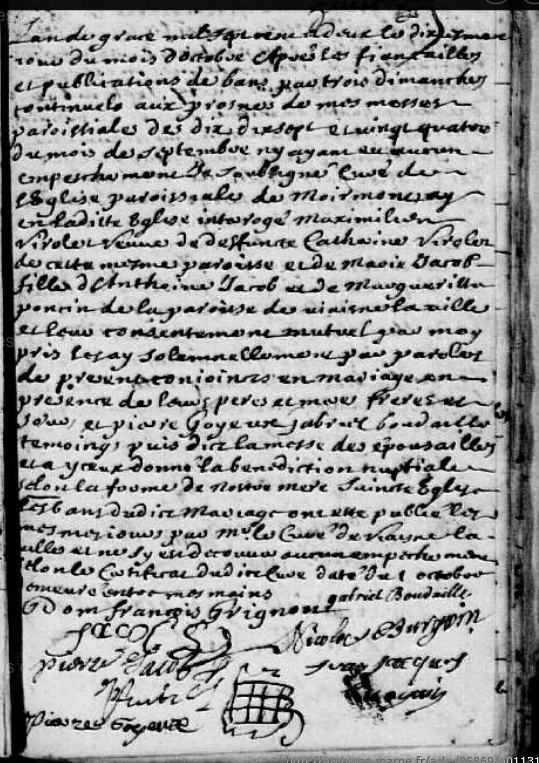 L'an de grace mil sept cent deux le dix
jour du mois d'octobre Apres les fiançailles
et publications de bans par trois dimanches
continuels aux prosnes de mes messes
paroissiales des dix dixsept et vingt quatre
du mois de septembre ny ayant eu aucun
empeschement Je soubsigné Curé de
l'Eglise paroissiale de Moirmont ay
en laditte Eglise interogé Maximilien
Virolet veuve de deffuncte Catherine Viroler
de cette mesme paroisse et de Marie Jacob
fille d'Anthoine Jacob et de Marguerite
poncin de la paroisse de viaisne la ville
et leur consentement mutuel par moy
pris les ay solemnellement par paroles
de present conjoincts en mariage en
presence de leurs peres et meres freres et
sœurs et pierre Goyeux gabriel boudaille
temoings puis dict la messe des épousailles
et a yceux donné la benediction nuptiale
selon la forme de nostre mere Saincte Eglise
les bans dudict Mariage ont esté publié les
mesmes jours par Mr le Curé de Viaisne la
ville et ne s'y est decouvert aucun empechement
selon le Certificat dudict Curé daté du 1 octobre
demeuré entre mes mains
gabriel Boudaille
G Dom françois Grignon
JACOB
Nicolas Burgoin
pierre Jacob
Jean Jacques
Pierre Goyeux
01131